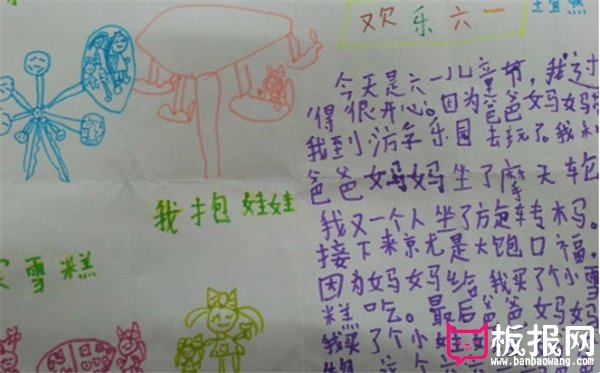 欢乐六一
今天是六一儿童节，我过
得很开心。因为爸爸妈妈带
我到游乐园去玩了。我和
爸爸妈妈坐了摩天车包
我又一个人坐了方旋转木马。
接下来京尤是大饱口福，
因为妈妈给我买了个小雪
糕吃。最后爸爸妈妈
我买了个小娃
我抱娃娃
买雪糕
板报网
www.banbaowang.com